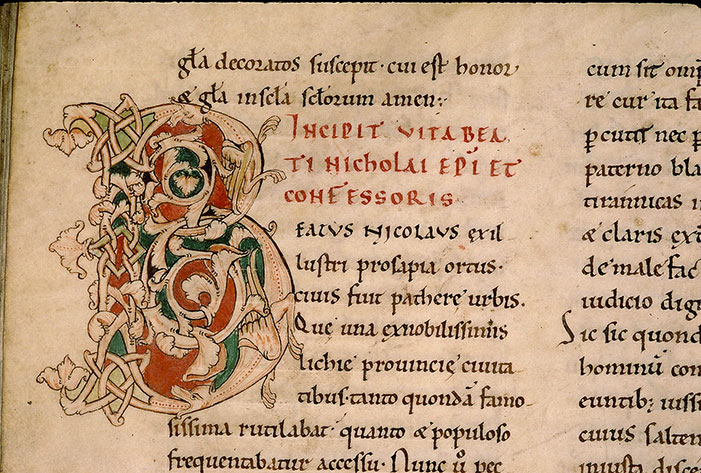 gła decoratos suscepit · cui est honor
& gła inscła scłorum amen:·
INCIPIT VITA BEA
TI NICHOLAI EPI ET
CONFESSORIS·
BEATUS NICOLAUS exil
lustri prosapia ortus·
ciuis fuit patherę urbis.
Que una exnobilissimis
lichie prouincię ciuita
tibus· tanto quondā famo-
sissima rutilabat· quanto & populoso
frequentabatur accessu· Nunc u̅ pec
cum sit omp
re cur ita fa
p cutit nec p
paterno bla
tirannicas i
& claris ext
de male fac
iudicio dig
Sic sic quond
hominū con
euntib; iussi
cuius salten
iniusta disce